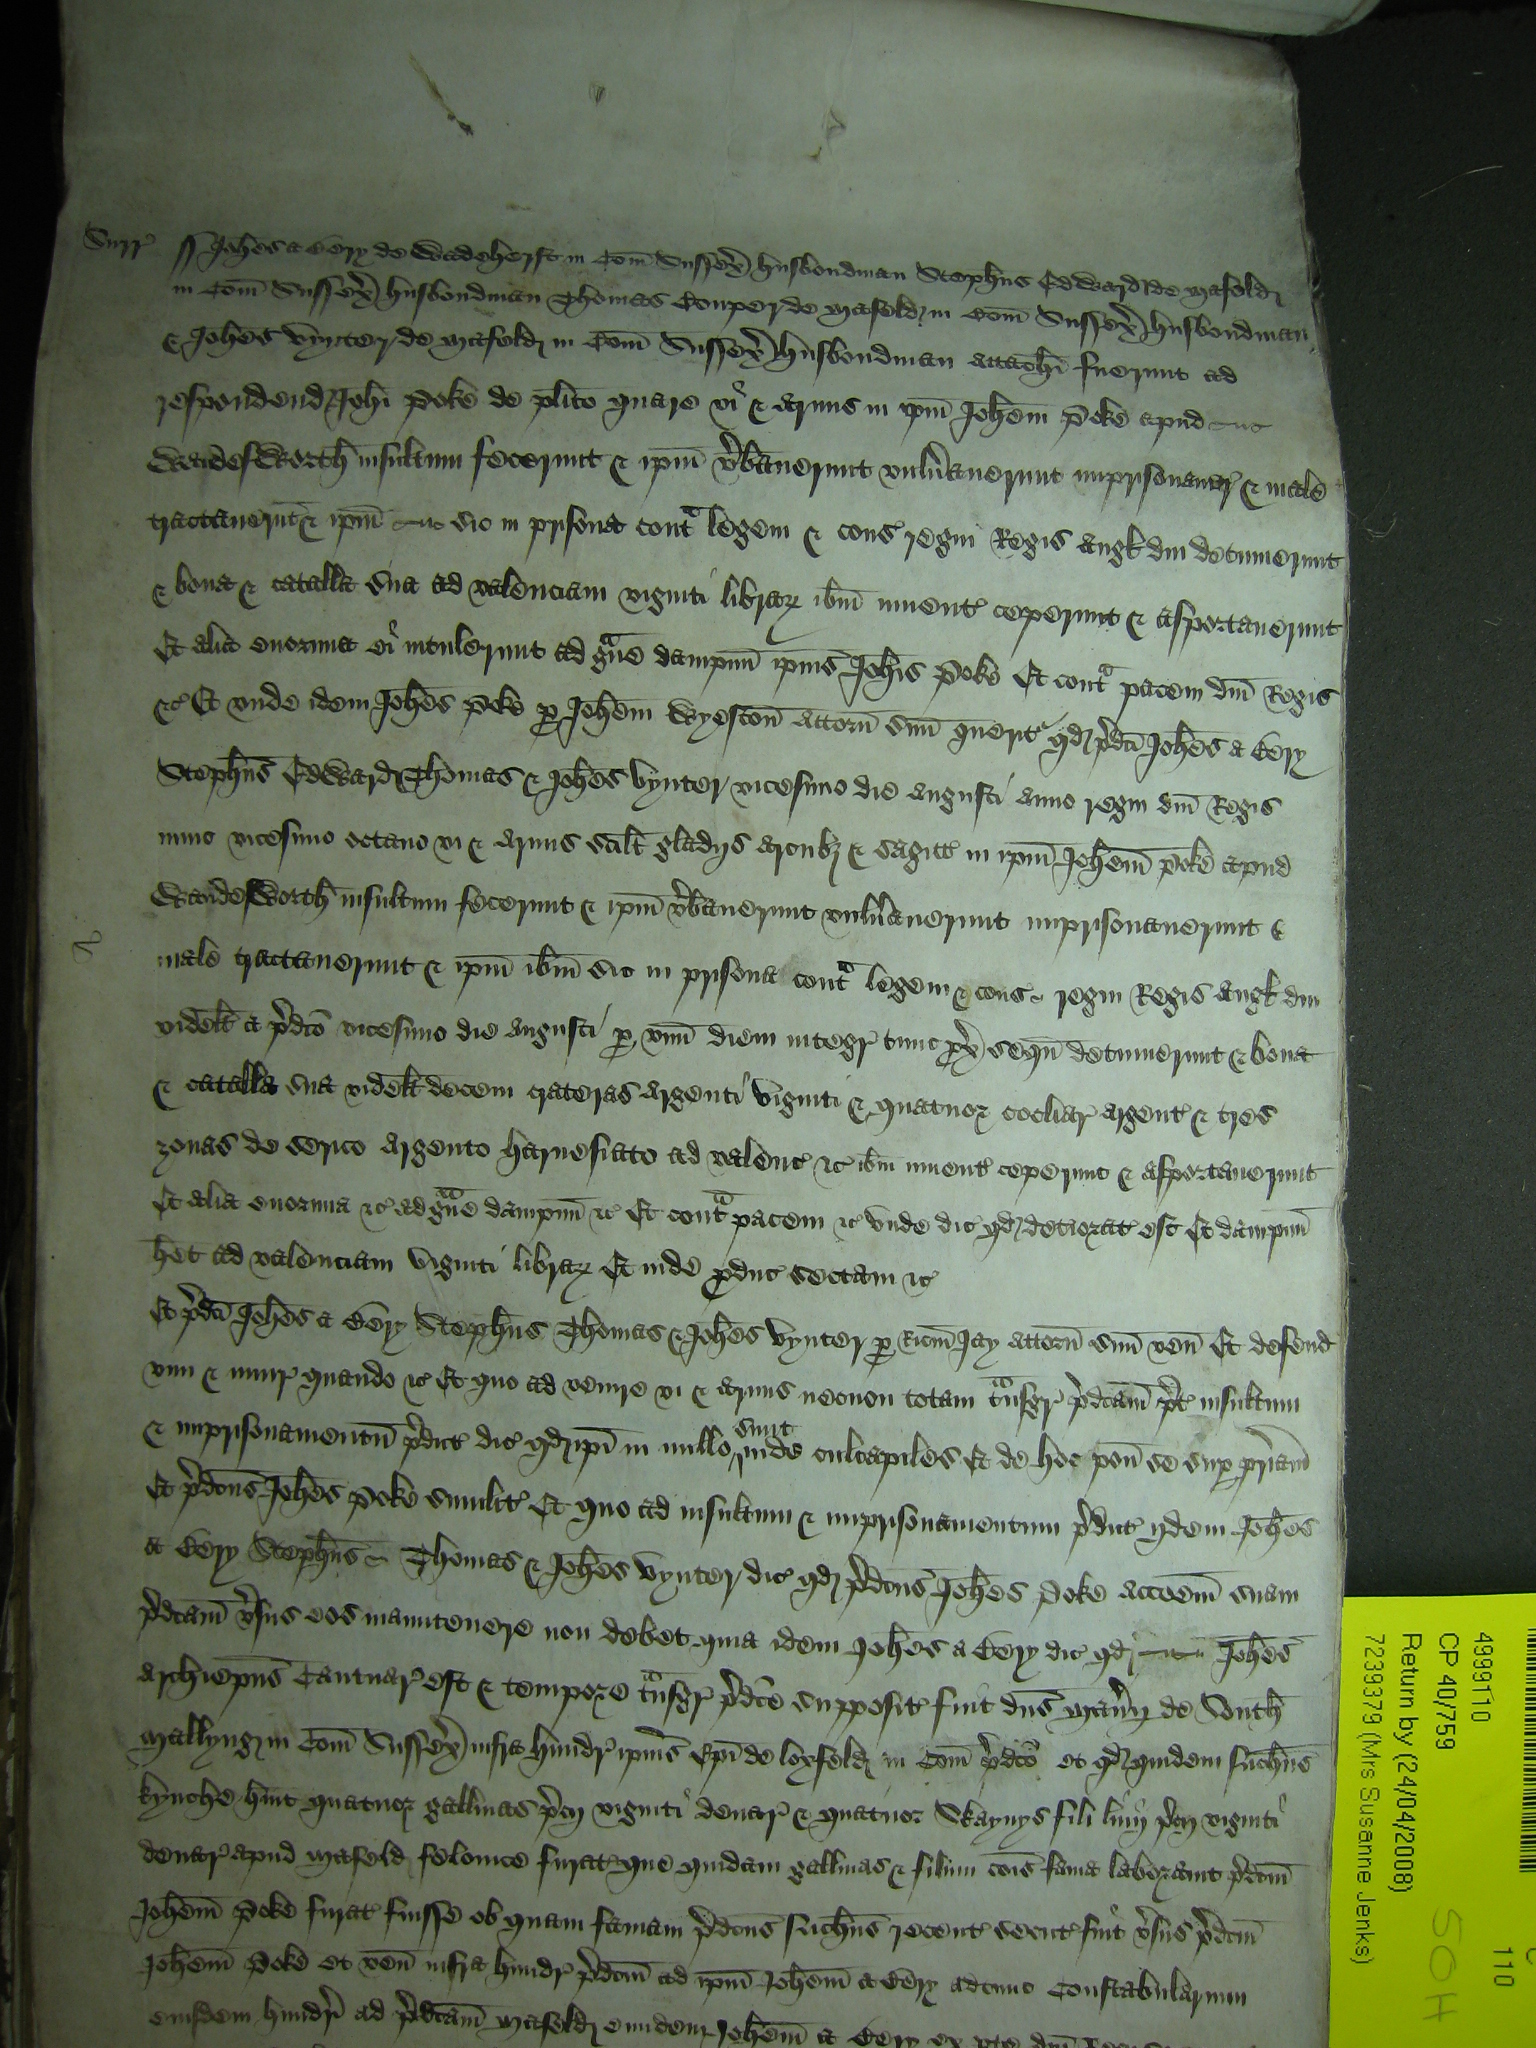 Surr' ss Joh̄es a Bery de Wadeherst in Com̄ Sussex̄ husbondman Steph̄us Edward de Mafeld
in Com̄ Sussex̄ husbondman Thomas Couper de Mafeld in Com̄ Sussex̄ husbondman
& Joh̄es Vynter de Mafeld in Com̄ Sussex̄ husbondman attach̄ fuerunt ad
respondend Joh̄i Poke de pl̄ito quare vi & armis in ip̄m Joh̄em Poke apud
Wandesworth insultum fecerunt & ip̄m v̄bauerunt vuln̄auerunt imprisonauer' & male
tractauerūt & ip̄m sic in prisona cont̄ legem & cons' regni Regis Angl̄ din detinuerunt
& bona & catalla sua ad valenciam viginti librar' ib̄m inuent' ceperunt & asportauerunt
Et alia enormia ei intulerunt ad gūe dampnū ip̄ius Joh̄is Poke Et cont̄ pacem dn̄i Regis
&c' Et vnde idem Joh̄es Poke p Joh̄em Wyeston Attorn̄ suū querit' qd p̄dc̄i Joh̄es a Bery
Steph̄us Edward Thomas & Joh̄es Vynter vicesimo die Augusti anno regni dn̄i Regis
nunc vicesimo octauo vi & armis scil̄t gladijs arcub3 & sagitt' in ip̄m Joh̄em Poke apud
Wandesworth insultum fecerunt & ip̄m v̄bauerunt vuln̄auerunt imprisonauerunt &
male tractauerunt & ip̄m ib̄m sic in prisona cont̄ legem & cons' regni Regis Angl̄ din
videl̄t a p̄dc̄o vicesimo die Augusti p vnū diem integr' tunc px̄ sequn̄ detinuerunt & bona
& catalla sua videl̄t decem crateras argenti viginti & quatuor cocliar' argent' & tres
zonas de serico argento harnesiato ad valenc' &c' ib̄m inuent' ceperunt & asportauerunt
Et alia enormia &c' ad gūe dampnū &c' Et cont̄ pacem &c' Vnde dic' qd deteriorat' est Et dampnū
h̄et ad valenciam viginti librar' Et inde p̄duc' sectam &c'
Et p̄dc̄i Joh̄es a Bery Steph̄us Thomas & Joh̄es Vynter p Ric̄m Jay attorn̄ suū ven̄ Et defend
vim & iniur' quando &c' Et quo ad venire vi & armis necnon totam t̄nsgr' p̄dc̄am p̄t' insultum
& imprisonamentū p̄dict' dic' qd ip̄i in nullo sunt inde culcapiles Et de hoc pon̄ se sup p̄riam
Et p̄dc̄us Joh̄es Poke similit' Et quo ad insultum & imprisonamentum p̄dict' ijdem Joh̄es
a Bery Steph̄us Thomas & Joh̄es Vynter dic' qd p̄dc̄us Joh̄es Poke acc̄oem suam
p̄dc̄am v̄sus eos manutenere non debet quia idem Joh̄es a Bery dic' qd Joh̄es
Archiep̄us Cantuar' est & tempore t̄nsgr' p̄dc̄e supposit' fuit dn̄s Man̄ij de South
Mallyng in Com̄ Sussex̄ infra hundr' ip̄ius Ep̄i de Loxfeld in Com̄ p̄dc̄o et qd quidem
Kynche h̄uit quatuor gallinas p̄cij viginti denar' & quatuor Skaynys fili linij p̄cij viginti
denar' apud Mafeld felonice furat' que quidam gallinas & filum cōis fama laborauit p̄dc̄m
Joh̄em Poke furat' fuisse ob quam famam p̄dc̄us recent' secut' fuit v̄sus p̄dc̄m
Joh̄em Poke et ven̄ infra hundr' p̄dc̄m ad ip̄m Joh̄em a Bery adtunc Constabularium
eiusdem hundr̄i ad p̄dc̄am Mafeld eundem Joh̄em a Bery ex p̄te dn̄i
4999110
CP 40/759
Return by (24/04/2008)
7239379 (Mrs Susanne Jenks)
110
SOH